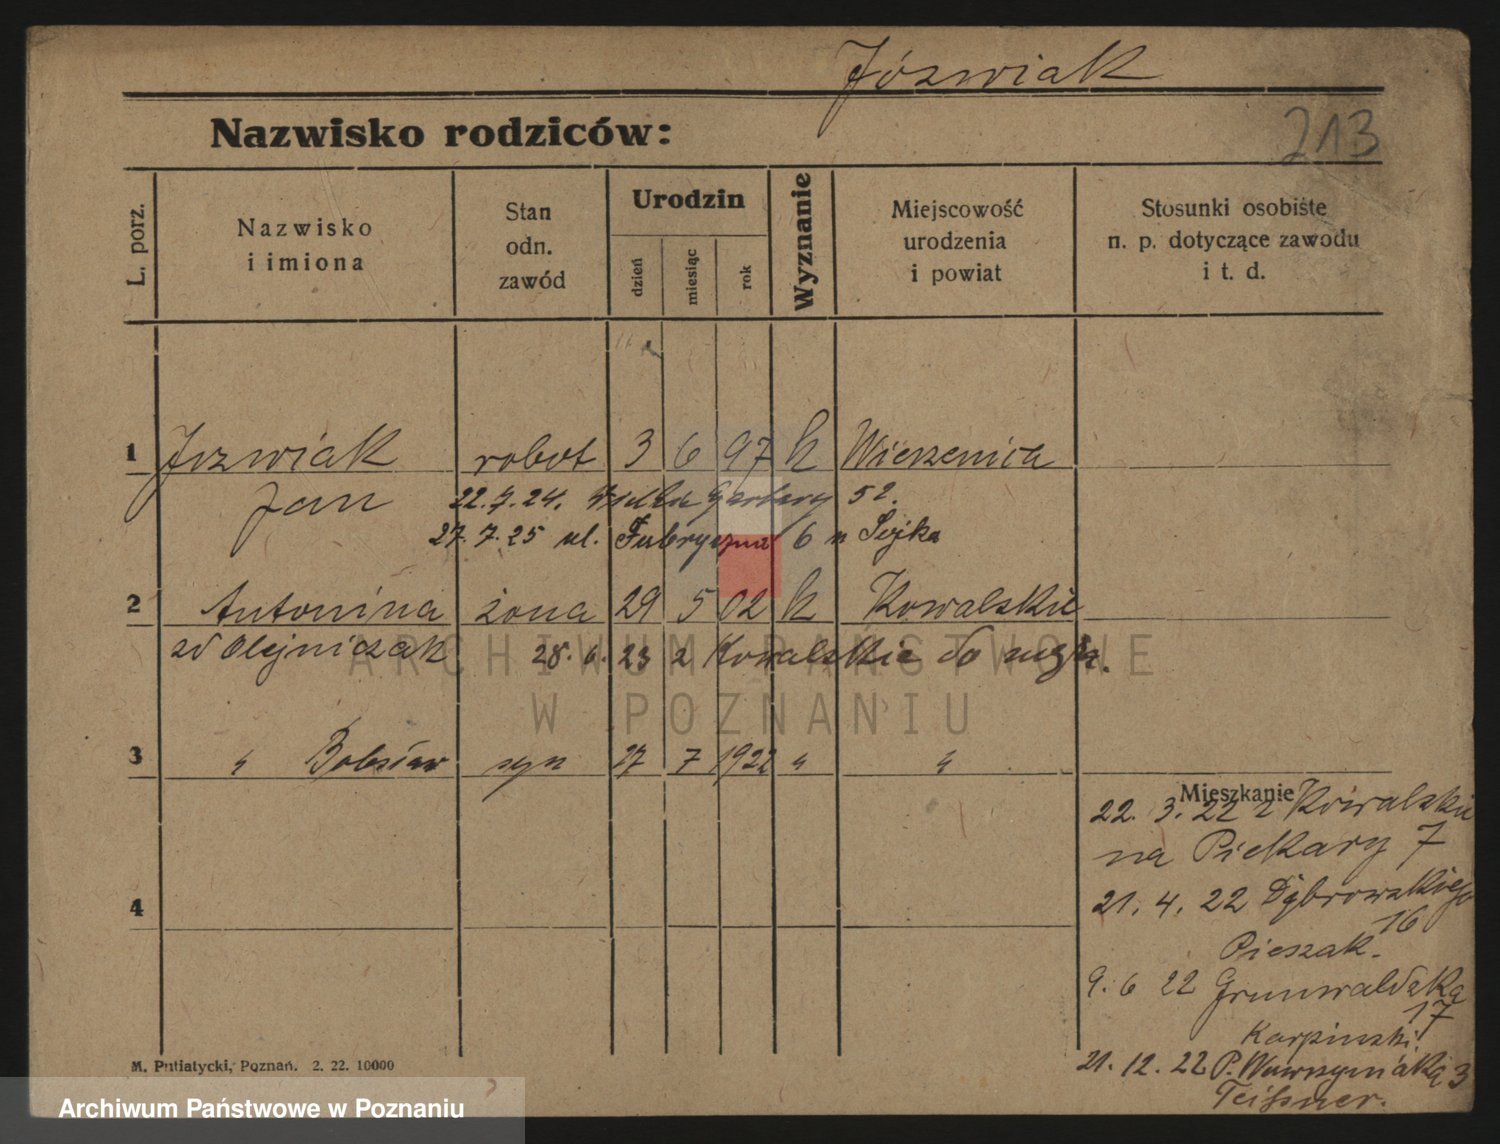 Józwiak
213
Nazwisko rodziców:
L. porz.
Nazwisko
i imiona
Stan
odn.
zawód
Urodzin
dzień
miesiąc
rok
Wyznanie
Miejscowość
urodzenia
i powiat
Stosunki osobiste
n. p. dotyczące zawodu
i t. d.
1 Jozwiak robot 3 6 97 k Wierzenica
Jan 22.7.24. Wielkie Garbary 52.
27.7.25 ul. Fabryczna 6 u Sojka
2 Antonina żona 29 5 02 k Kowalskie
zd Olejniczak 28.6.23 z Kowalskie do męża.
ARCHIWUM PAŃSTWOWE
W POZNANIU
3 " Bolesław syn 27 7 1922 " "
Mieszkanie
22. 3. 22 z Kowalskie
na Piekary 7
4
21. 4. 22 Dąbrowskiego
16
Pieszak.
9. 6 22 Grunwaldzka
17
Karpinski
21. 12. 22 P. Wawrzyniaka 3
M. Putiatycki, Poznań. 2. 22. 10000
Archiwum Państwowe w Poznaniu